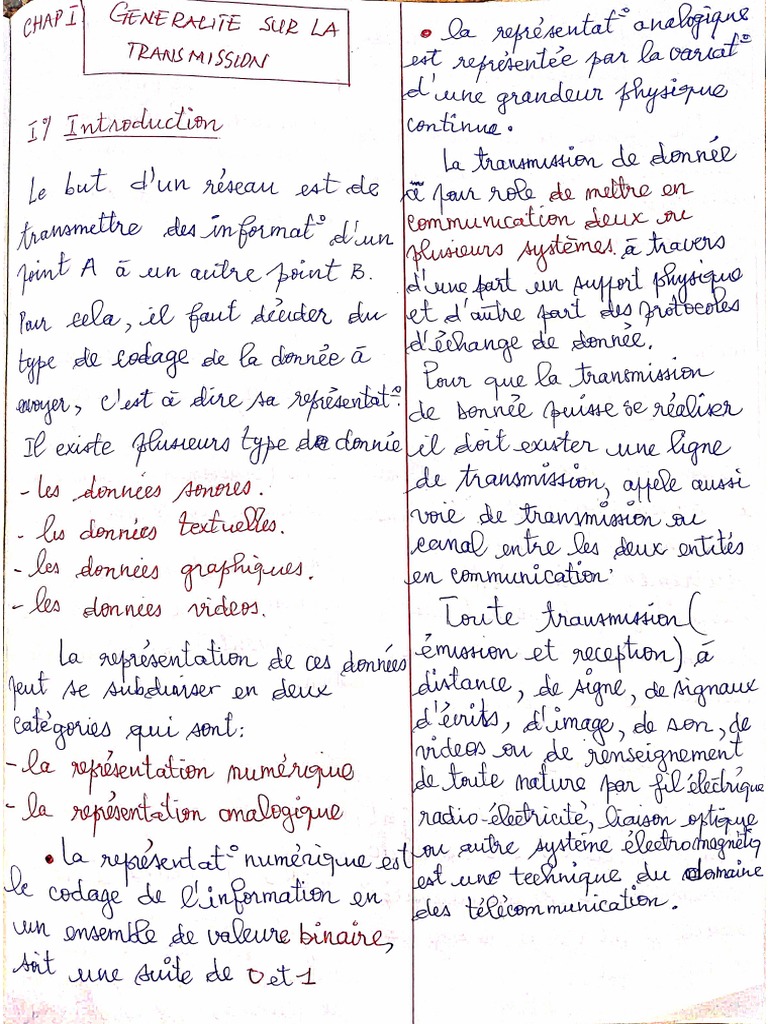 CHAP I GENERALITE SUR LA
TRANSMISSION
I°/ Introduction
Le but d'un réseau est de
transmettre des informat° d'un
point A à un autre point B.
Pour cela, il faut décider du
type de codage de la donnée à
envoyer, c'est à dire sa représentat°.
Il existe plusieurs type de donnée
- les données sonores.
- les données textuelles.
- les données graphiques.
- les données videos.
La représentation de ces données
peut se subdiviser en deux
catégories qui sont:
- la représentation numérique
- la représentation analogique
• la représentat° numérique est
le codage de l'information en
un ensemble de valeure binaire,
soit une suite de 0 et 1
• la représentat° analogique
est représentée par la variat°
d'une grandeur physique
continue.
La transmission de donnée
à pour role de mettre en
communication deux ou
plusieurs systèmes à travers
d'une part un support physique
et d'autre part des protocoles
d'échange de donnée.
Pour que la transmission
de donnée puisse se réaliser
il doit exister une ligne
de transmission, appele aussi
voie de transmission ou
canal entre les deux entités
en communication.
Toute transmission (
émission et reception) à
distance, de signe, de signaux
d'écrits, d'image, de son, de
videos ou de renseignement
de toute nature par fil électrique
radio-électricité, liaison optique
ou autre système électromagnétiq
est une technique du domaine
des télécommunication.